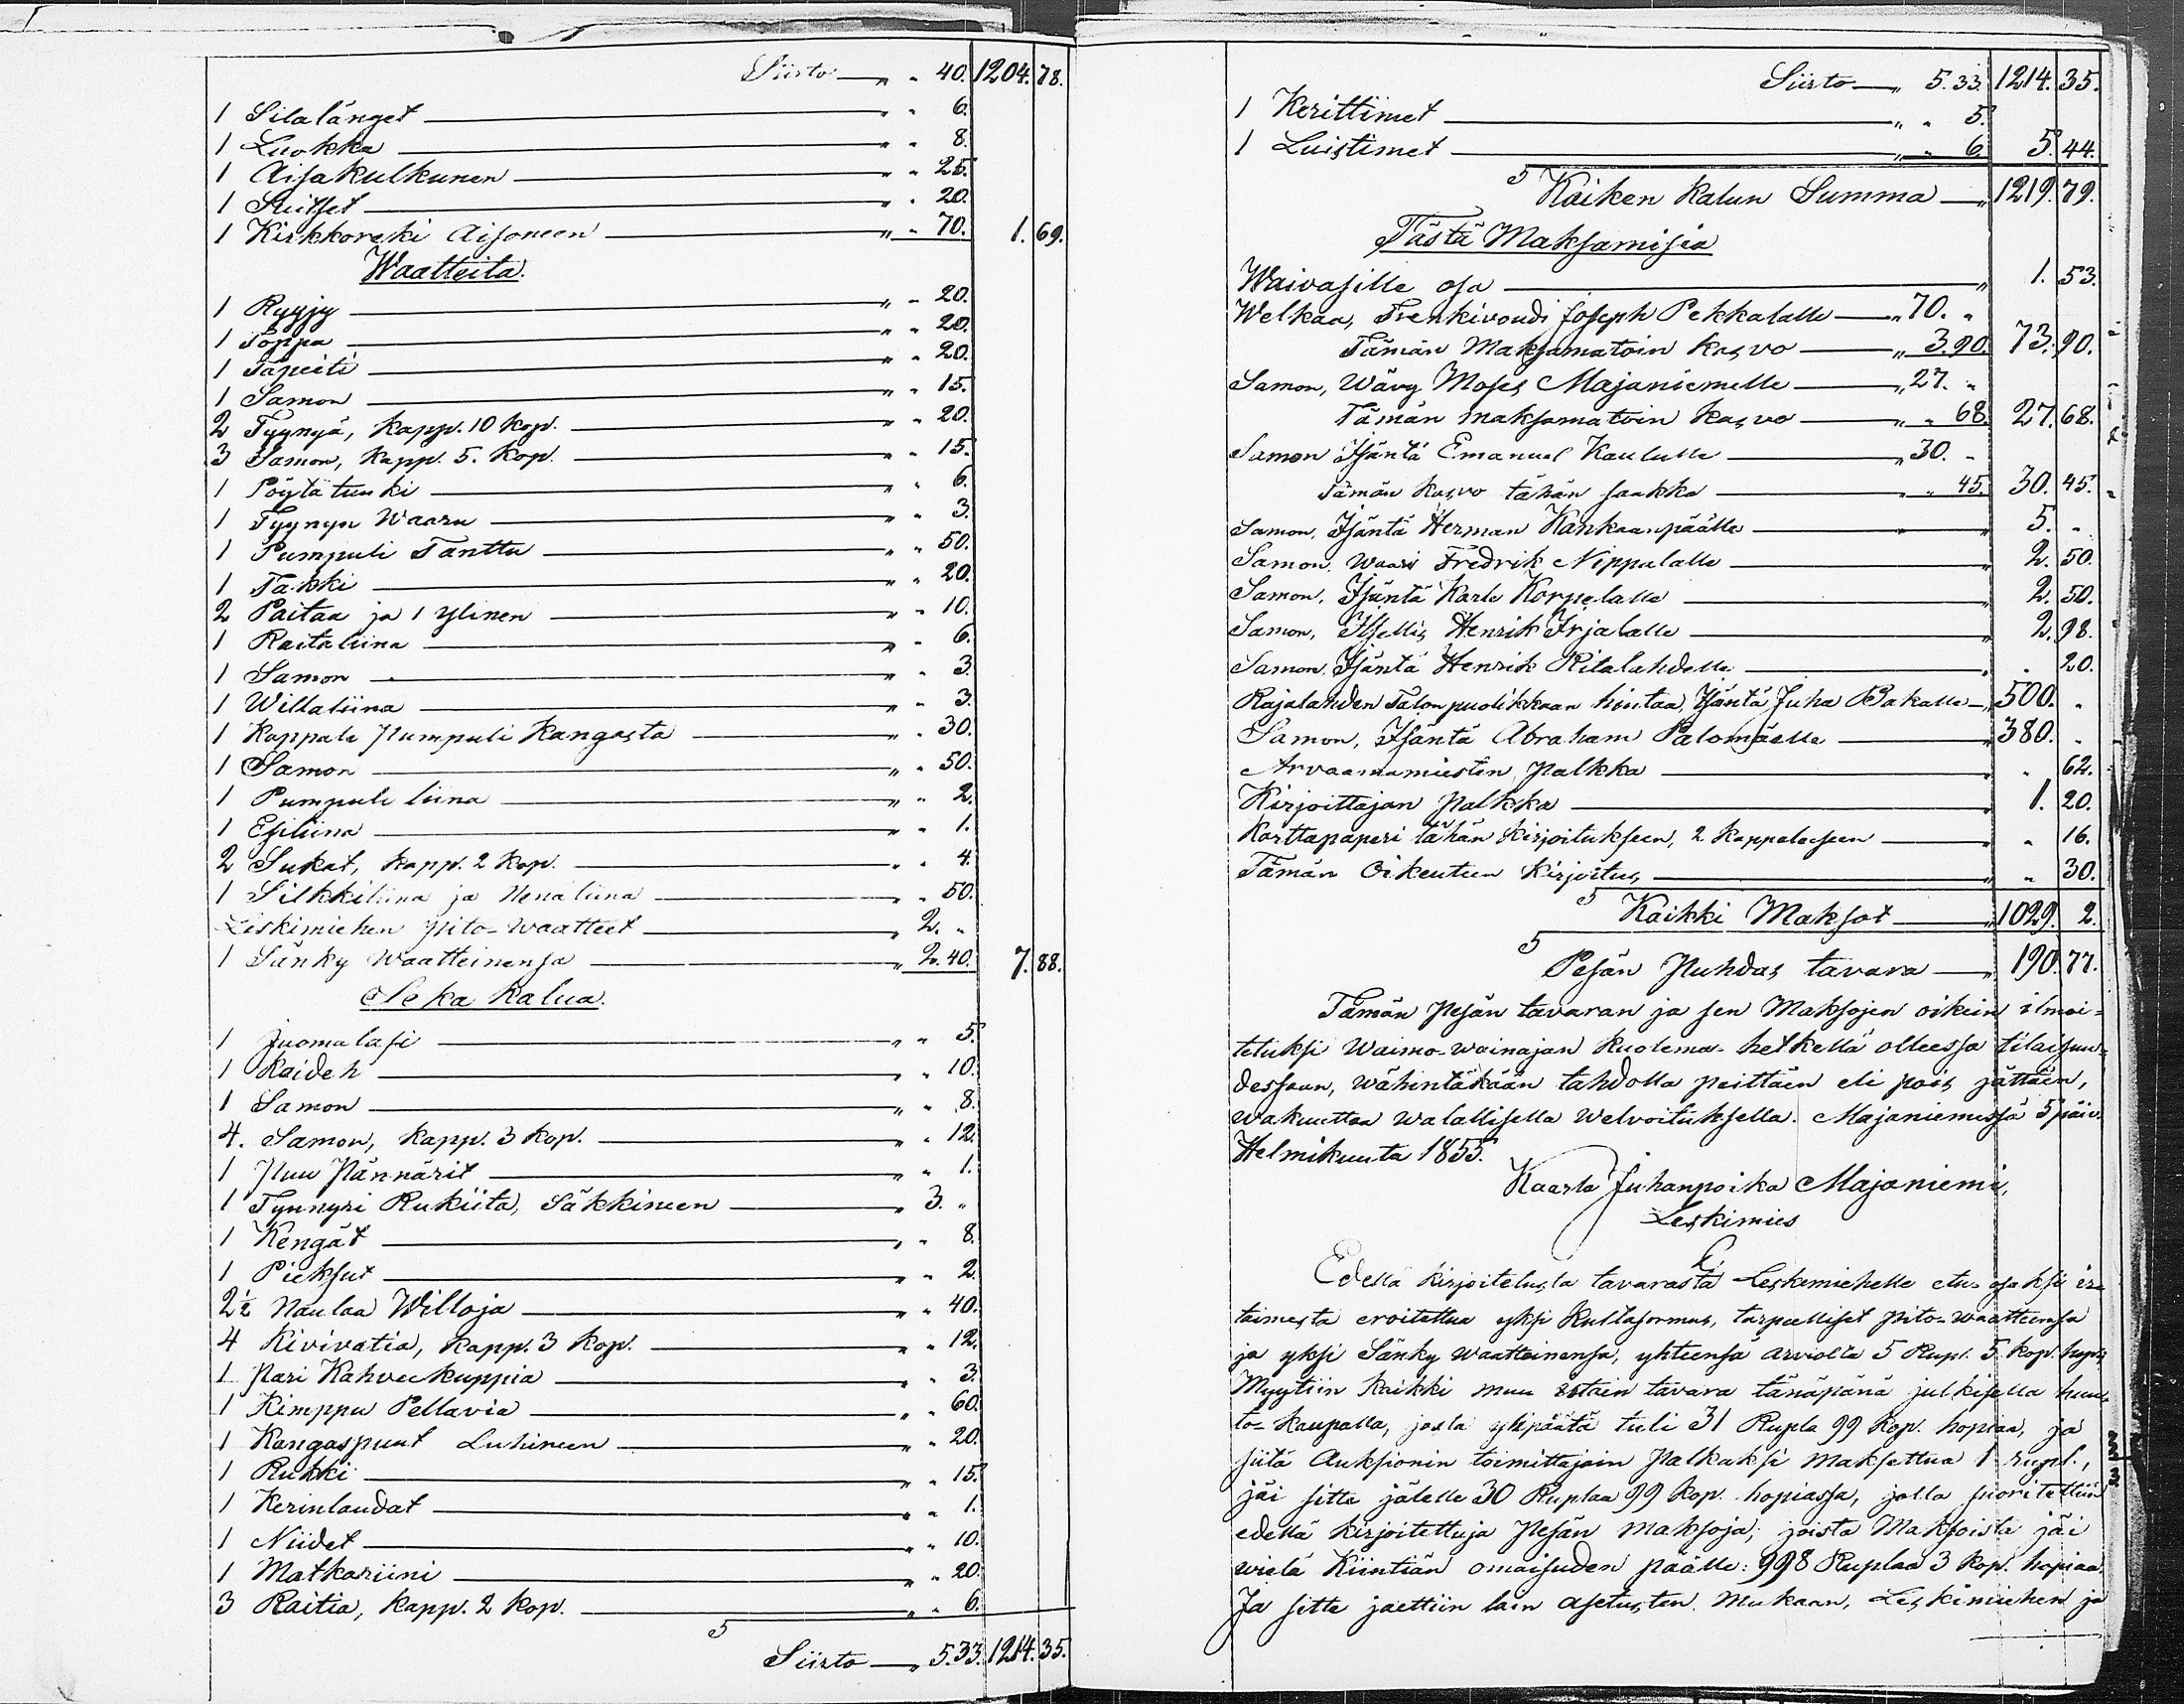 Siirto — " " 40. 1204. 78.
1 Silalänget — " " 6.
1 Luokka — " " 8.
1 Aisakulkunen — " " 25.
1 Suitset — " " 20.
1 Kirkkoreki Aisoneen — " " 70. 1. 69.
Waatteita.
1 Ryyjy — " " 20.
1 Toppa — " " 20.
1 Tapeiti — " " 20.
1 Samon — " " 15.
2 Tyynyä, kapp. 10 kop. — " " 20.
3 Samon, kapp. 5. kop. — " " 15.
1 Pöytätuuki — " " 6.
1 Tyynyn Waaru — " " 3.
1 Pumpuli Tanttu — " " 50.
1 Takki — " " 20.
2 Paitaa ja 1 ylinen — " " 10.
1 Raitaliina — " " 6.
1 Samon — " " 3.
1 Willaliina — " " 3.
1 Kappale Pumpuli Kangasta — " " 30.
1 Samon — " " 50.
1 Pumpuli liina — " " 2.
1 Esiliina — " " 1.
2 Sukat, kapp. 2 kop. — " " 4.
1 Silkkiliina ja Nenäliina — " " 50.
Leskimiehen pito-waatteet — " 2. "
1 Sänky Waatteinensa — " 2. 40. 7. 88.
Seka kalua.
1 Juomalasi — " " 5.
1 Kaideh — " " 10.
1 Samon — " " 8.
4. Samon, kapp. 3 kop. — " " 12.
1 Puu Pännärit — " " 1.
1 Tynnyri Rukiita, Säkkineen — " 3. "
1 Kengät — " " 8.
1 Pieksut — " " 2.
2½ Naulaa Willoja — " " 40.
4 Kivivatia, kapp. 3 kop. — " " 12.
1 Pari Kahveekuppia — " " 3.
1 Kimppu Pellavia — " " 60.
1 Kangaspuut Luhineen — " " 20.
1 Rukki — " " 15.
1 Kerinlaudat — " " 1.
1 Niidet — " " 10.
1 Matkariini — " " 20.
3 Raitia, kapp. 2 kop. — " " 6.
Siirto — " 5. 33. 1214. 35.
Siirto — " 5. 33. 1214. 35.
1 Kerittimet — " " 5.
1 Luistimet — " " 6. 5. 44.
Kaiken kalun Summa — " 1219. 79.
Tästä Maksamisia
Waivasille osa — " 1. 53.
Welkaa, Trenkivoudi Joseph Pekkalalle — " 70. "
Tämän Maksamatoin kasvo — " 3. 90. 73. 90.
Samon, Wävy Moses Majaniemelle — " 27. "
Tämän maksamatoin kasvo — " " 68. 27. 68.
Samon Isäntä Emanuel Kaululle — " 30. "
Tämän kasvo tähän saakka — " " 45. 30. 45.
Samon, Isäntä Herman Kankaanpäälle — " 5. "
Samon, Waari Fredrik Nippalalle — " 2. 50.
Samon, Isäntä Karle Korpelalle — " 2. 50.
Samon, Itsellis Henrik Irjalalle — " 2. 98.
Samon, Isäntä Henrik Ritalahdelle — " " 20.
Rajalahden Talon puolikkaan hintaa, Isäntä Juha Pakalle — " 500. "
Samon, Isäntä Abraham Palomäelle — " 380. "
Arvaamamiesten Palkka — " " 62.
Kirjoittajan Palkka — " 1. 20.
Karttapaperi tähän kirjoitukseen, 2 kappaleeseen — " " 16.
Tämän Oikeuteen kirjoitus — " " 30.
Kaikki Maksot — " 1029. 2.
Pesän Puhdas tavara — " 190. 77.
Tämän Pesän tavaran ja sen Maksojen oikein ilmoi=
tetuksi Waimo-wainajan kuolema-hetkellä olleessa tilaisuu=
dessaan, wähintäkään tahdolla peittäin eli pois jättäin,
wakuuttaa walallisella welvoituksella. Majaniemessä 5 päiv.
Helmikuuta 1855.
Kaarle Juhanpoika Majaniemi,
Leskimies
Edellä kirjoitetusta tavarasta Leskimiehelle etu-osaksi ir=
taimesta eroitettua yksi Kultasormus, tarpeelliset pito-waatteensa
ja yksi Sänky waatteinensa, yhteensä arviolta 5 Rupl. 5 kop. hopi.
Myytiin kaikki muu irtain tavara tänäpänä julkisella huu=
to-kaupalla, josta ylipäätä tuli 31 Rupla 99 kop. hopiaa, ja
siitä Auksionin toimittajain Palkaksi maksettua 1 rupl.,
jäi sitte jälelle 30 Ruplaa 99 kop. hopiassa, jolla suoritettiin
edellä kirjoitettuja Pesän maksoja; joista Maksoista jäi
wielä Kiintiän omaisuden päälle: 998 Ruplaa 3 kop. hopiaa.
Ja sitte jaettiin lain asetusten mukaan, Leskimiehen ja